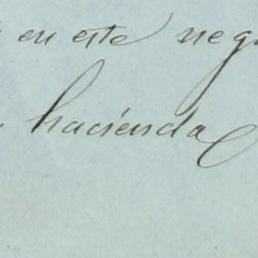 en este neg
hacienda